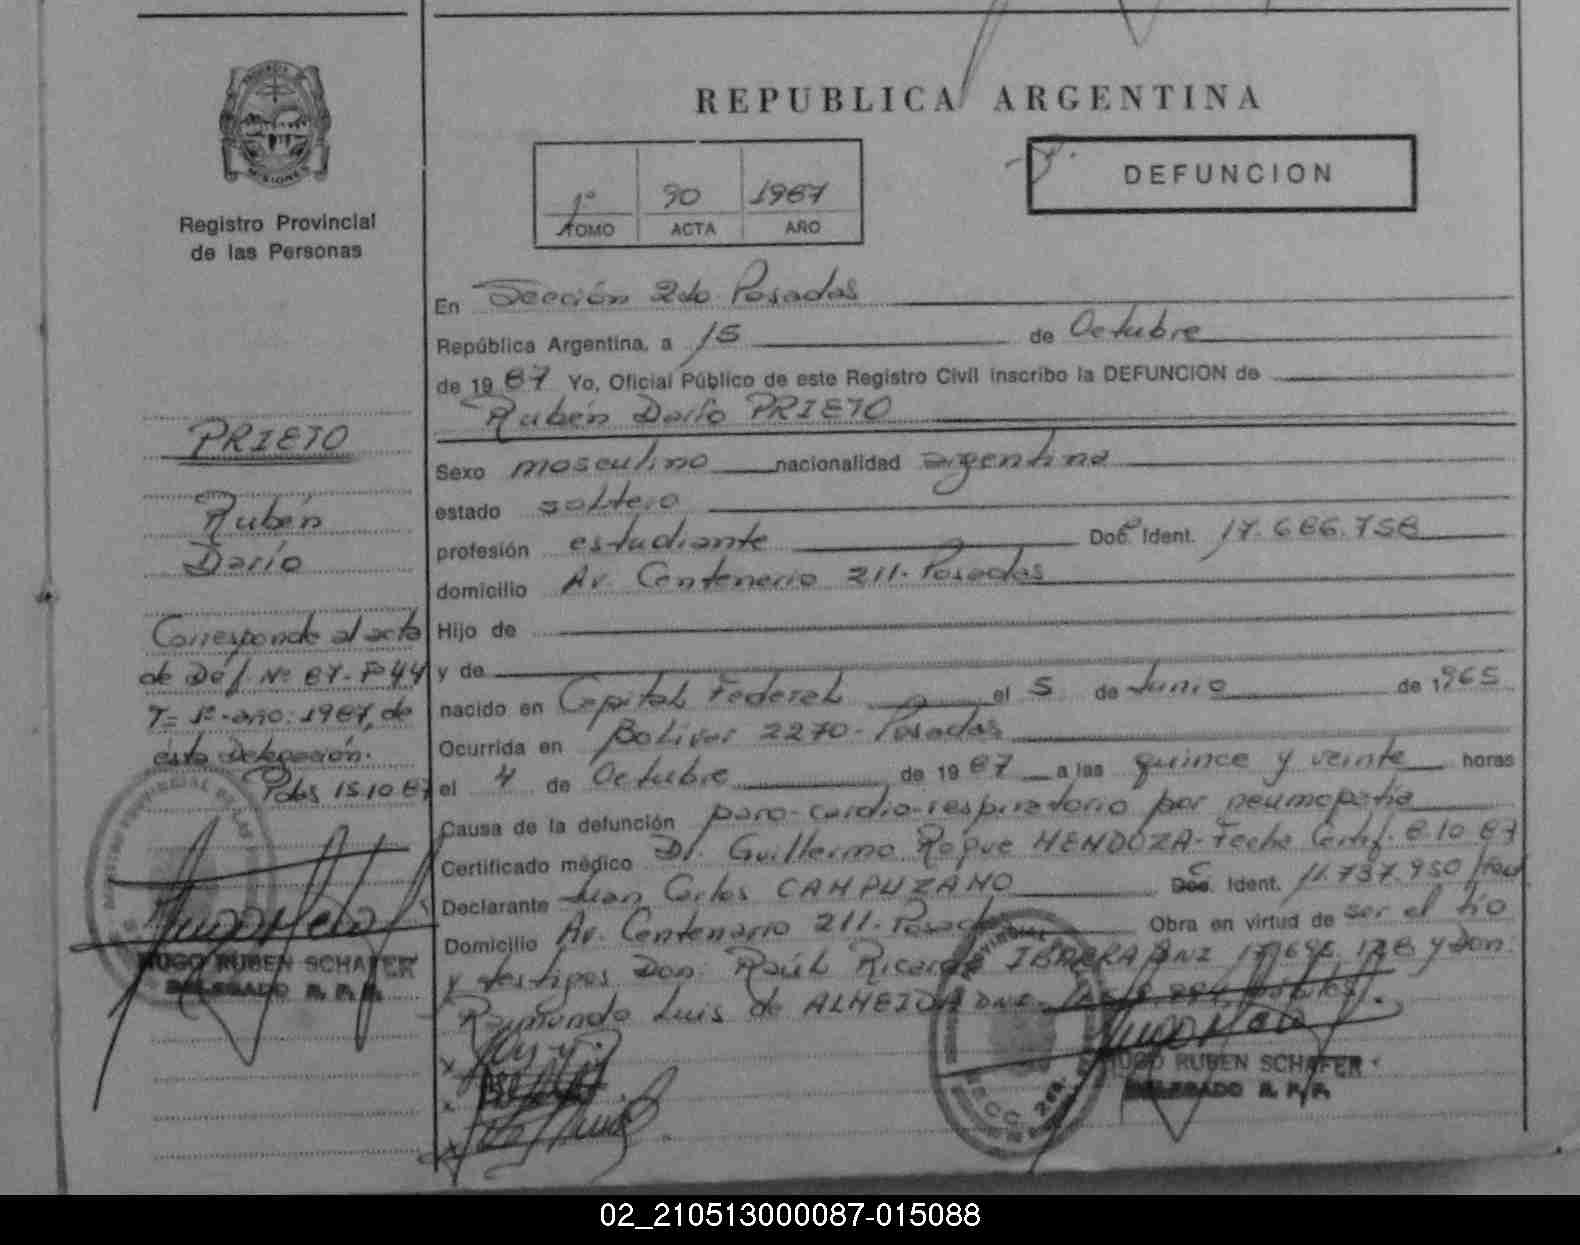 PROVINCIA DE
MISIONES
Registro Provincial
de las Personas
PRIETO
Rubén
Darío
Corresponde al acta
de Def. Nº 87-Fº44
Tº 1º-año: 1987, de
esta Delegación.
Pdas 15.10.87
HUGO RUBEN SCHAFER
DELEGADO R. P. P.
REPUBLICA ARGENTINA
1º 90 1987
TOMO ACTA AÑO
DEFUNCION
En Sección 2da Posadas
República Argentina, a 15 de Octubre
de 1987 Yo, Oficial Público de este Registro Civil inscribo la DEFUNCION de
Rubén Darío PRIETO
Sexo masculino nacionalidad argentina
estado soltero
profesión estudiante Doc. Ident. 17.686.758
domicilio Av. Centenario 211-Posadas
Hijo de
y de
nacido en Capital Federal el 5 de Junio de 1965
Ocurrida en Bolívar 2270-Posadas
el 4 de Octubre de 1987 a las quince y veinte horas
Causa de la defunción paro-cardio-respiratorio por neumopatia
Certificado médico Dr. Guillermo Roque MENDOZA-Fecha Certif. 8.10.87
Declarante Juan Carlos CAMPUZANO Doc. Ident. 11.737.950
Domicilio Av. Centenario 211-Posadas Obra en virtud de ser el tío
y testigos Don: Raúl Ricardo IBARRA DNI y Don:
Raimundo Luis de ALMEIDA DNI
HUGO RUBEN SCHAFER
DELEGADO R. P. P.
02_210513000087-015088